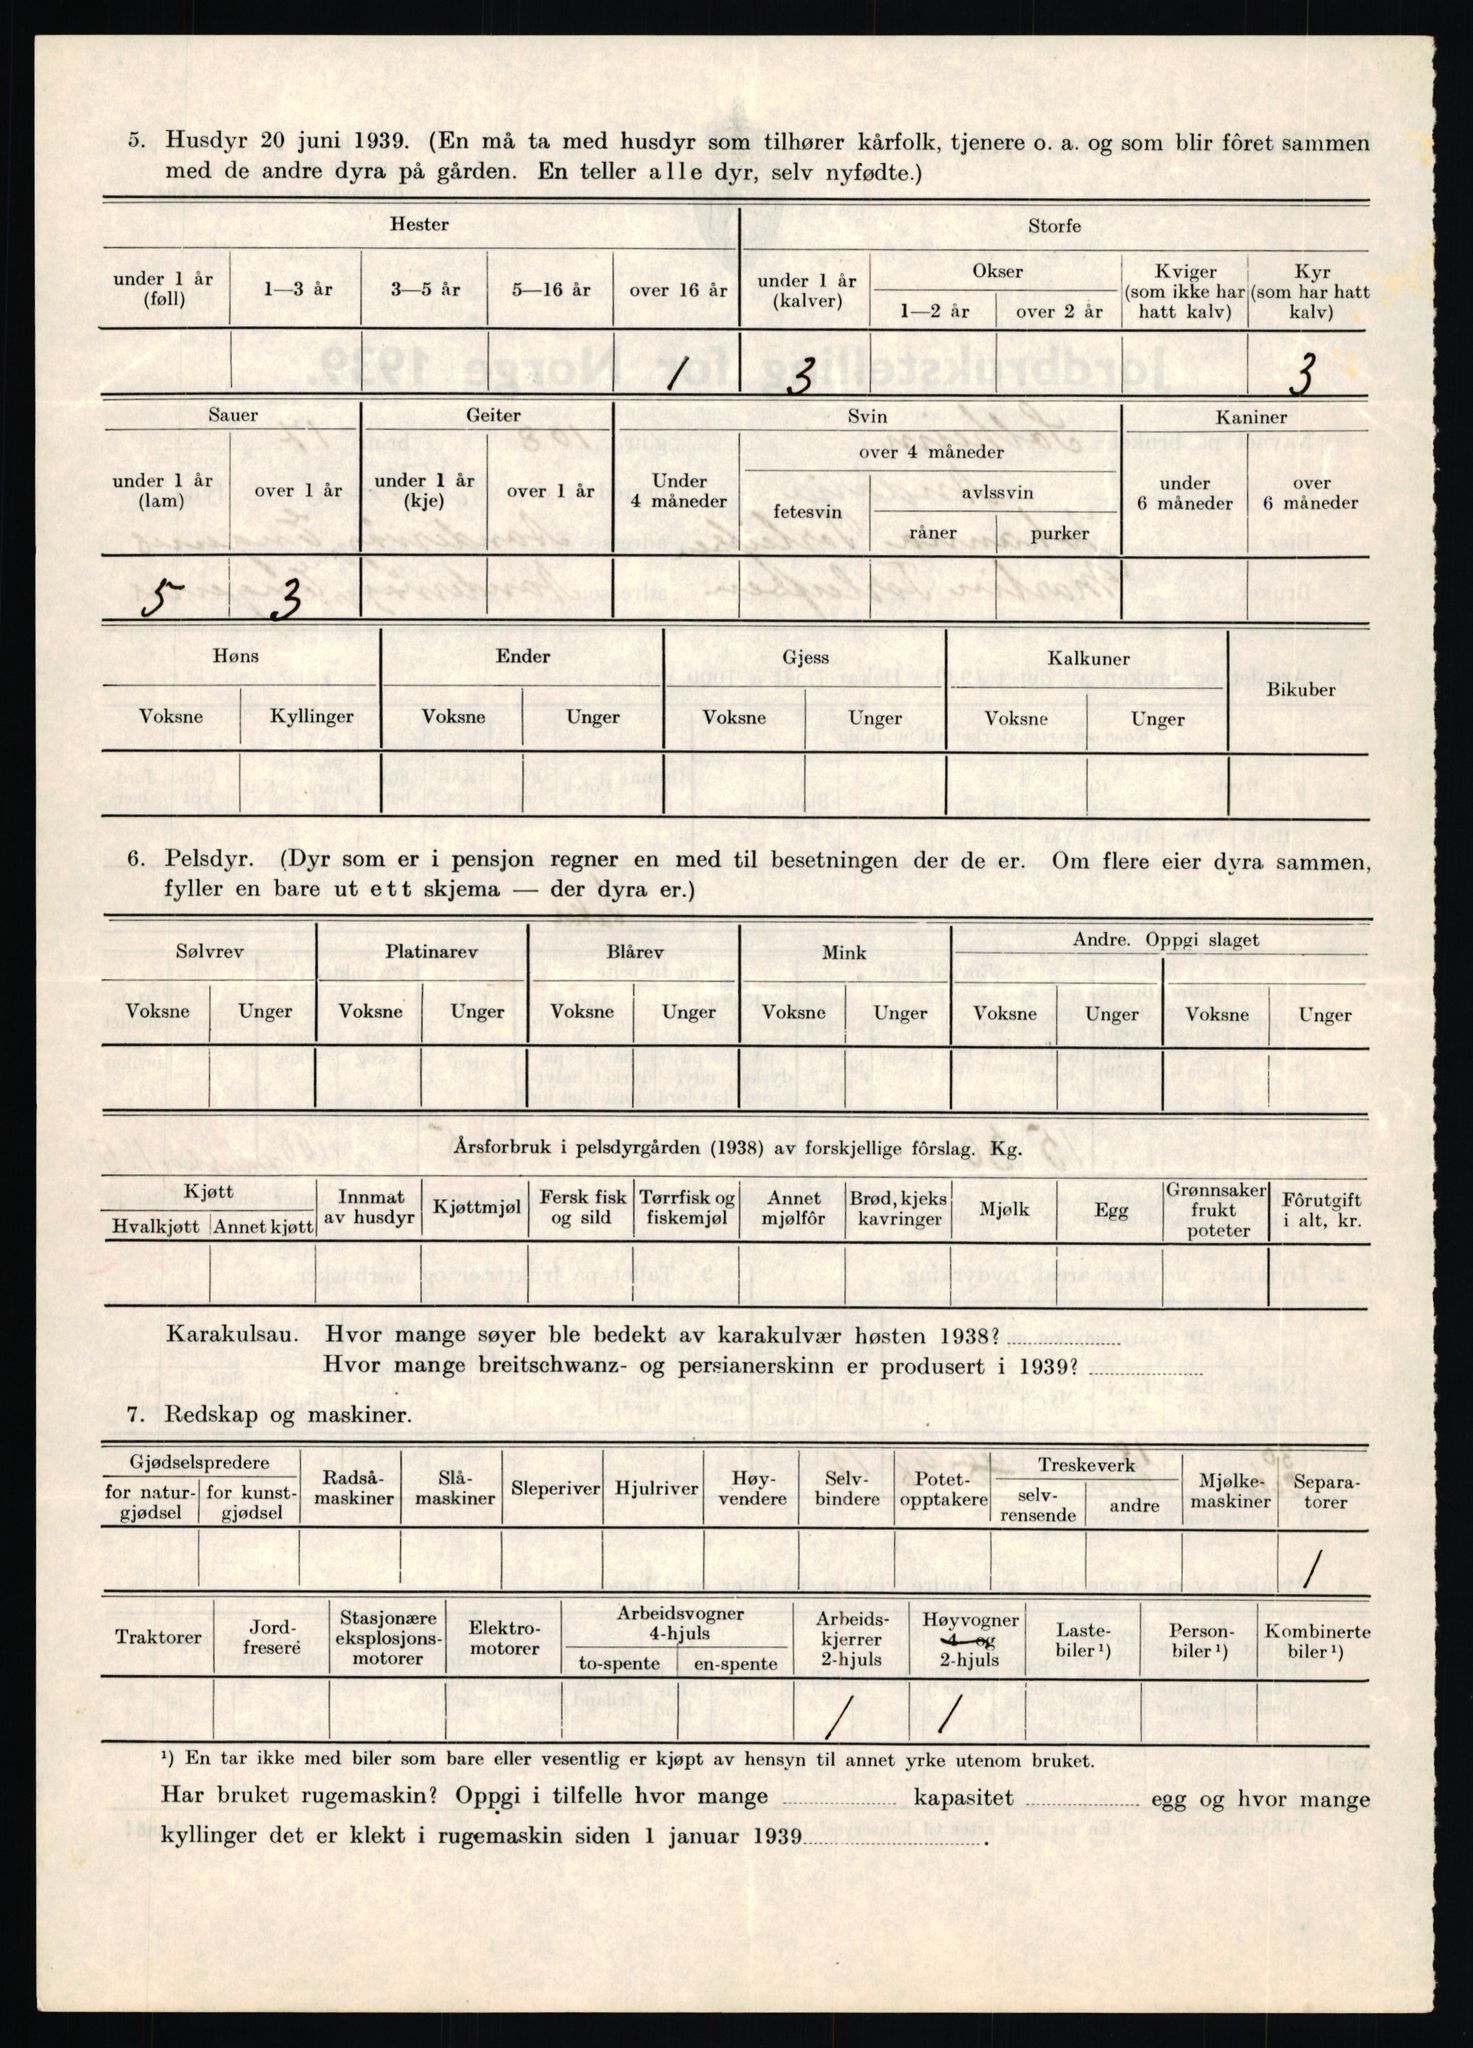 5. Husdyr 20 juni 1939. (En må ta med husdyr som tilhører kårfolk, tjenere o. a. og som blir fôret sammen
med de andre dyra på gården. En teller alle dyr, selv nyfødte.)
Hester Storfe
under 1 år (føll) 1—3 år 3—5 år 5—16 år over 16 år under 1 år (kalver) Okser 1—2 år over 2 år Kviger (som ikke har hatt kalv) Kyr (som har hatt kalv)
1 3 3
Sauer Geiter Svin Kaniner
under 1 år (lam) over 1 år under 1 år (kje) over 1 år Under 4 måneder over 4 måneder fetesvin avlssvin råner purker under 6 måneder over 6 måneder
5 3
Høns Ender Gjess Kalkuner Bikuber
Voksne Kyllinger Voksne Unger Voksne Unger Voksne Unger
6. Pelsdyr. (Dyr som er i pensjon regner en med til besetningen der de er. Om flere eier dyra sammen,
fyller en bare ut ett skjema — der dyra er.)
Sølvrev Platinarev Blårev Mink Andre. Oppgi slaget
Voksne Unger Voksne Unger Voksne Unger Voksne Unger Voksne Unger Voksne Unger
Årsforbruk i pelsdyrgården (1938) av forskjellige fôrslag. Kg.
Kjøtt Hvalkjøtt Annet kjøtt Innmat av husdyr Kjøttmjøl Fersk fisk og sild Tørrfisk og fiskemjøl Annet mjølfôr Brød, kjeks kavringer Mjølk Egg Grønnsaker frukt poteter Fôrutgift i alt, kr.
Karakulsau. Hvor mange søyer ble bedekt av karakulvær høsten 1938?
Hvor mange breitschwanz- og persianerskinn er produsert i 1939?
7. Redskap og maskiner.
Gjødselspredere for natur-gjødsel for kunst-gjødsel Radså-maskiner Slå-maskiner Sleperiver Hjulriver Høy-vendere Selv-bindere Potet-opptakere Treskeverk selv-rensende andre Mjølke-maskiner Separa-torer
1
Traktorer Jord-fresere Stasjonære eksplosjons-motorer Elektro-motorer Arbeidsvogner 4-hjuls to-spente en-spente Arbeids-kjerrer 2-hjuls Høyvogner 4 og 2-hjuls Laste-biler ¹) Person-biler ¹) Kombinerte biler ¹)
1 1
¹) En tar ikke med biler som bare eller vesentlig er kjøpt av hensyn til annet yrke utenom bruket.
Har bruket rugemaskin? Oppgi i tilfelle hvor mange kapasitet egg og hvor mange
kyllinger det er klekt i rugemaskin siden 1 januar 1939 .